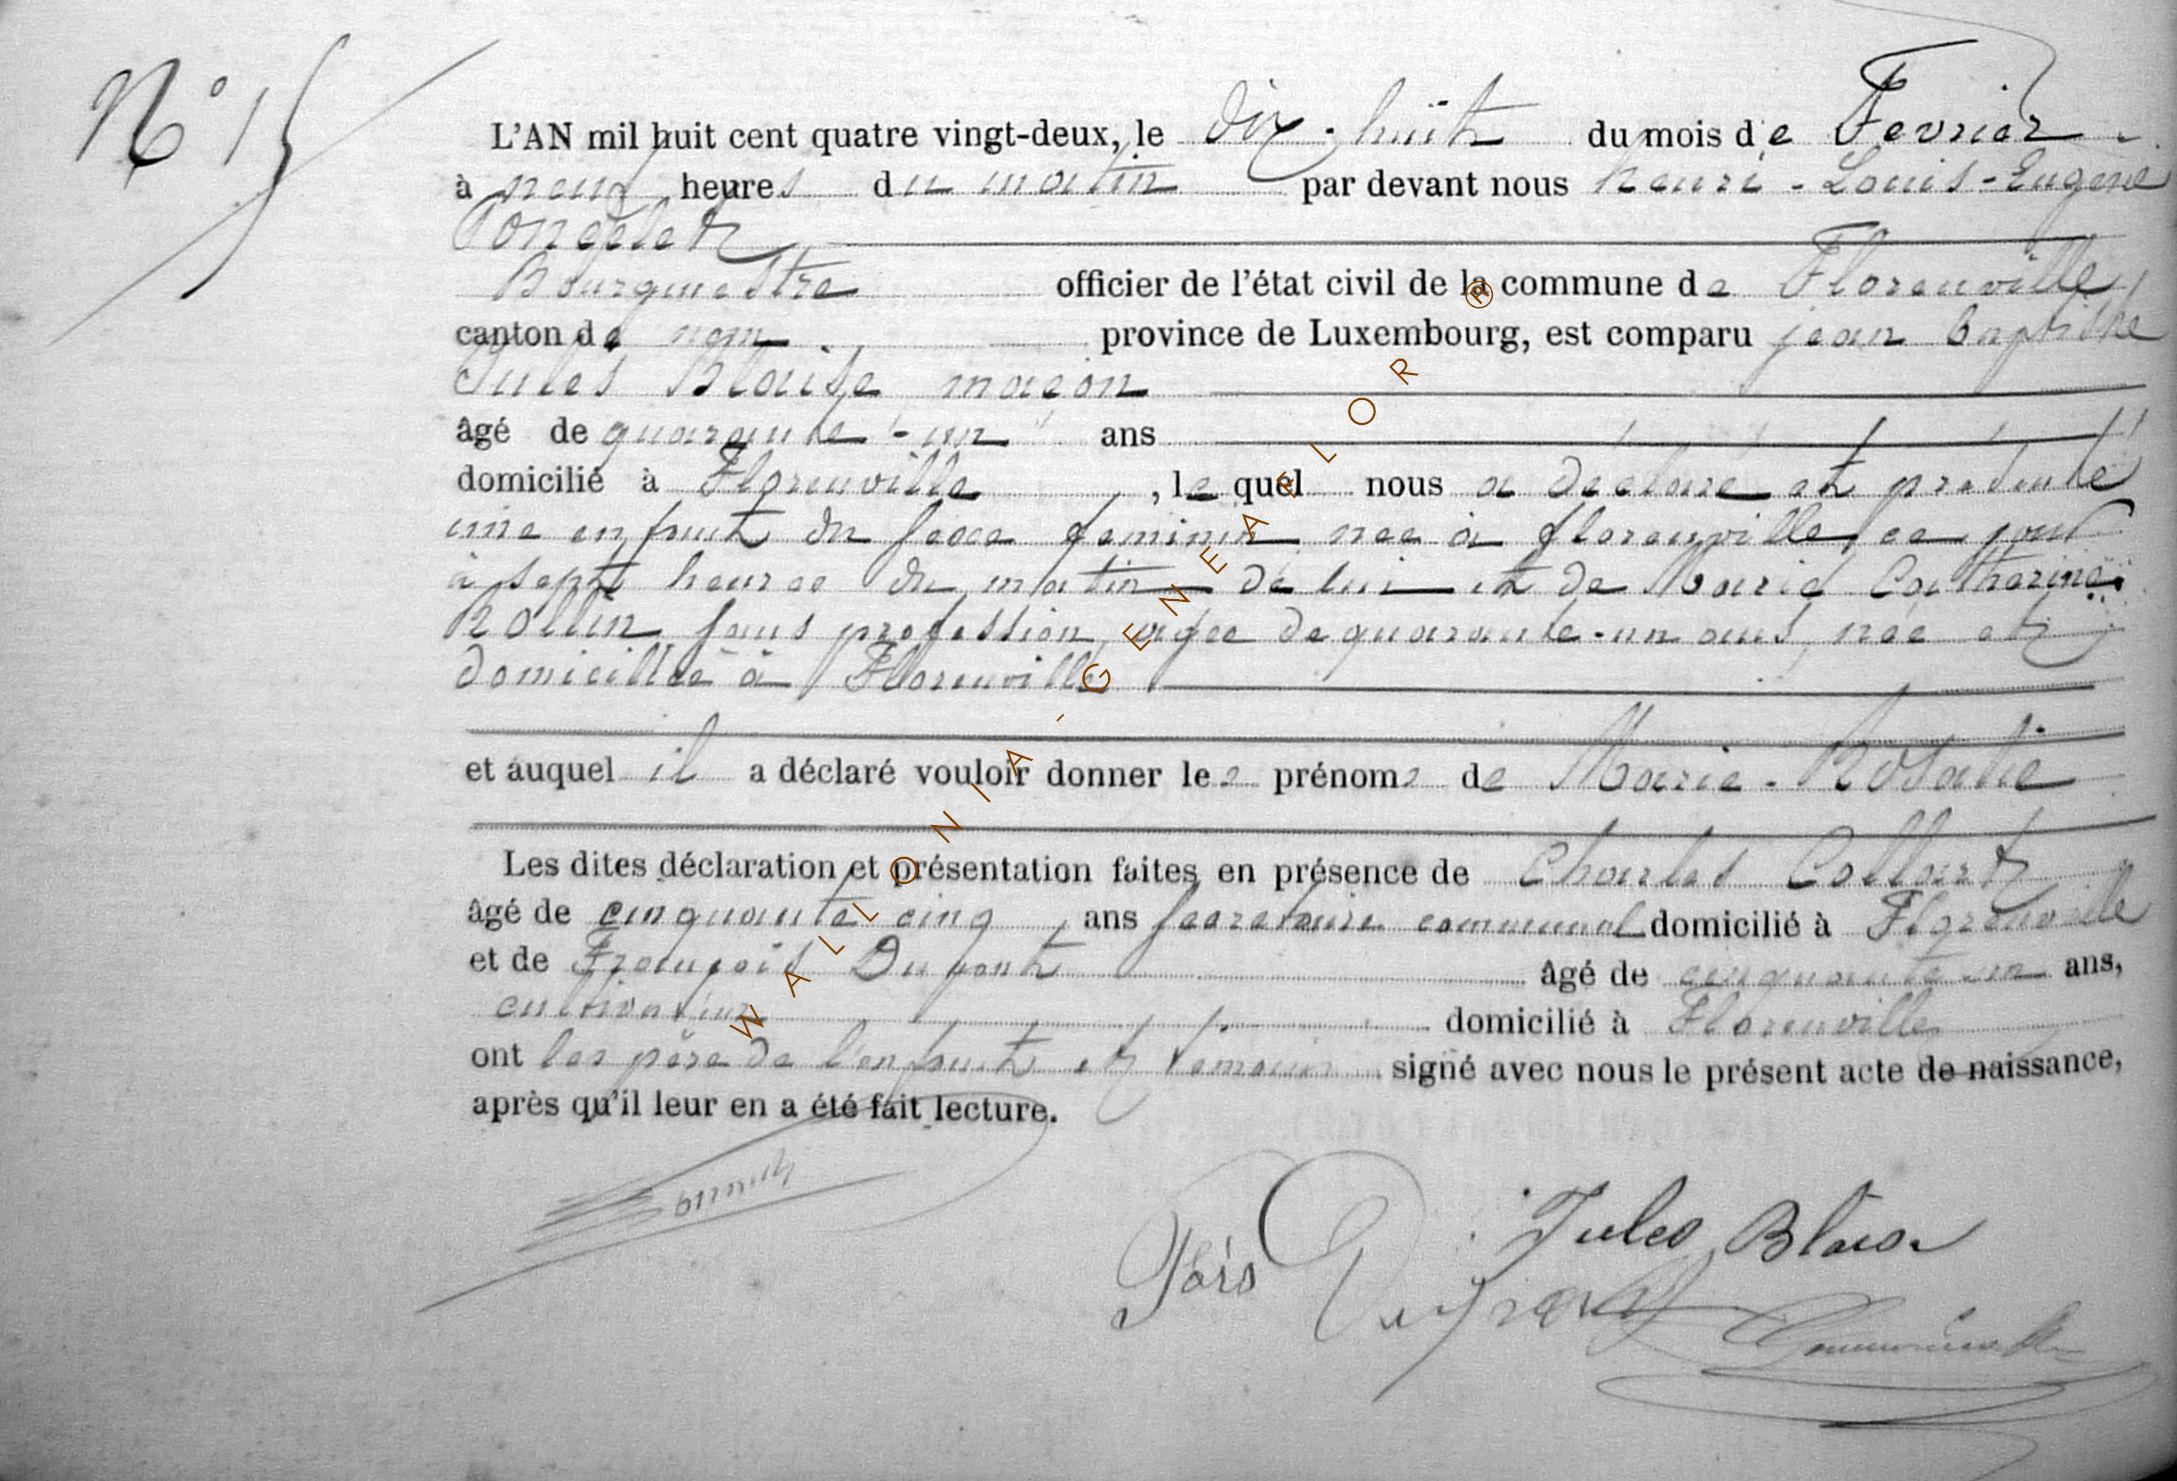 N° 15
L'AN mil huit cent quatre vingt-deux, le dix-huit du mois de Fevrier
à neuf heures du matin par devant nous henri-Louis-Eugène
Poncelet
Bourgmestre officier de l'état civil de la commune de Florenville
canton de nom province de Luxembourg, est comparu jean baptiste
Jules Blaise maçon
âgé de quarante-un ans
domicilié à Florenville, lequel nous a déclaré et présenté
une enfant du sexe feminin née à florenville ce jour
à sept heures du matin de lui et de Marie Catherine
Rollin sans profession, agée de quarante-un ans, née et
domiciliée à Florenville
et auquel il a déclaré vouloir donner les prénoms de Marie-Rosalie
Les dites déclaration et présentation faites en présence de Charles Collart
âgé de cinquante cinq ans secretaire communal domicilié à Florenville
et de François Dupont âgé de cinquante-un ans,
cultivateur domicilié à Florenville
ont les père de l'enfant et témoins signé avec nous le présent acte de naissance,
après qu'il leur en a été fait lecture.
Jules Blaise
WALLONIA-GENEAELOR ®